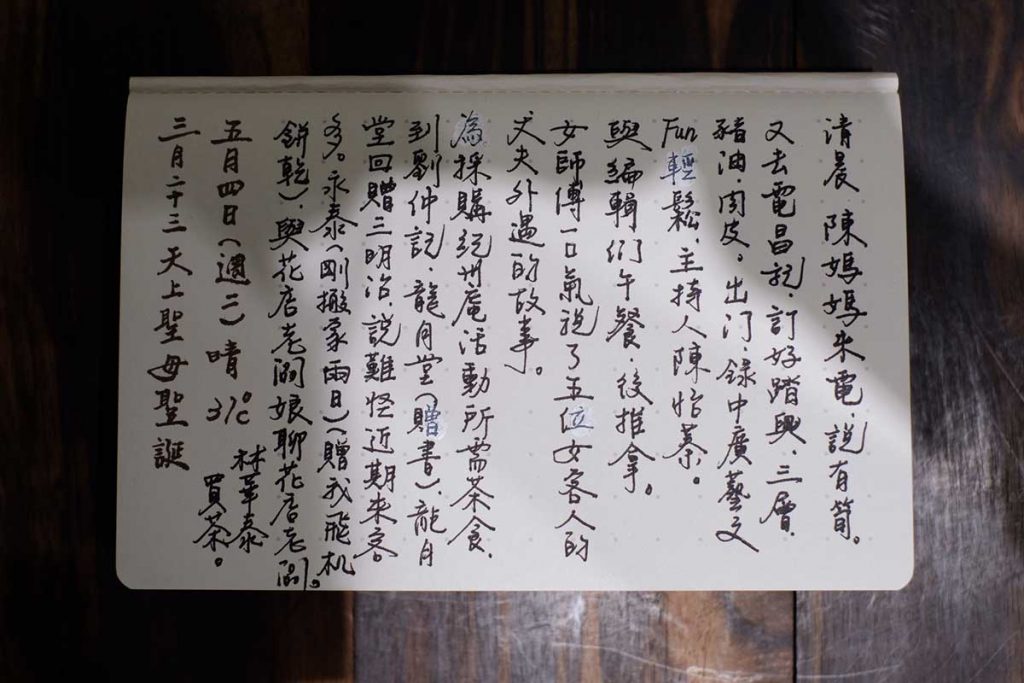 清晨、陳媽媽來電、說有筍。
又去電昌記、訂好蹄興、三層、
豬油、肉皮。出門、錄中廣藝文
Fun輕鬆、主持人陳怡蓁。
與編輯們午餐、後推拿。
女師傅一口氣說了五位女客人的
丈夫外遇的故事。
為採購紀州庵活動所需茶食、
到劉仲記、龍月堂(贈書)、龍月
堂回贈三明治、說難怪近期來客
多。永泰(剛搬家兩日)(贈我飛机
餅乾)、與花店老闆娘聊花店老闆。
五月四日(週二)晴 31℃ 林華泰
買茶。
三月二十三天上聖母聖誕